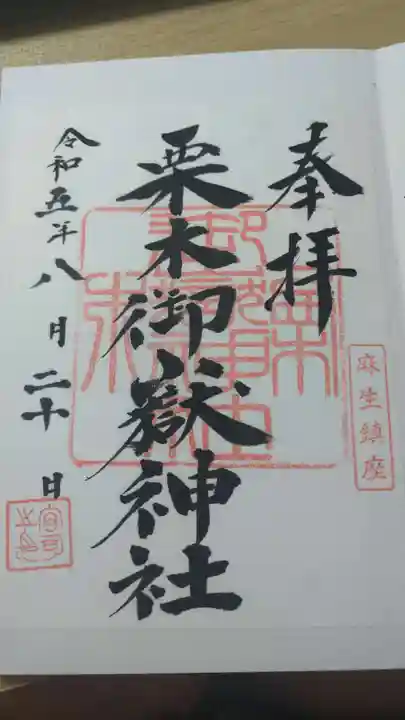 奉拝
麻生鎮座
栗木御嶽神社
令和五年八月二十日